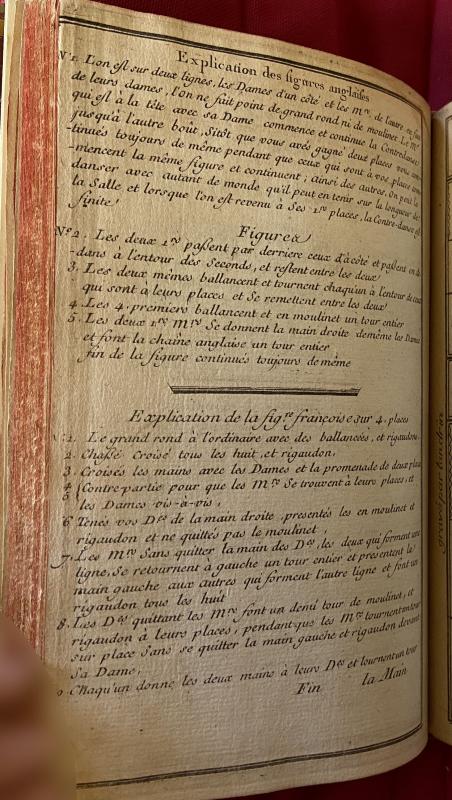 Explication des figures anglaises
N.º 1. L'on est sur deux lignes, les Dames d'un côté et les M.rs de l'autre en face
de leurs dames, l'on ne fait point de grand rond ni de moulinet. Le M.r
qui est à la tête avec sa Dame commence et continue la Contredanse
jusqu'à l'autre bout, Sitôt que vous avés gagné deux places vous
-tinués toujours de même pendant que ceux qui sont à vos places
-mencent la même figure et continuent; ainsi des autres. On peut la
danser avec autant de monde qu'il peut en tenir sur la longueur de
la Salle et lorsque l'on est revenu à Ses 1.res places, la Contre-danse est
finite!
Figures
N.º 2. Les deux 1.rs passent par derriere ceux d'à côté et passent en de
-dans à l'entour des Seconds, et restent entre les deux!
3. Les deux mêmes ballancent et tournent chaqu'un à l'entour de ceux
qui sont à leurs places et Se remettent entre les deux!
4. Les 4. premiers ballancent et en moulinet un tour entier
5. Les deux 1.rs M.rs Se donnent la main droite de même les Dames
et font la chaine anglaise un tour entier
fin de la figure continués toujours de même
Explication de la fig.re françoise sur 4. places
N.º 1. Le grand rond à l'ordinaire avec des ballancés, et rigaudons.
2. Chassé croisé tous les huit, et rigaudon,
3. Croisés les mains avec les Dames et la promenade de deux places
4
5 Contre-partie pour que les M.rs Se trouvent à leurs places, et
les Dames vis-à-vis,
6. Tenés vos D.es de la main droite, presentés les en moulinet et
rigaudon et ne quittés pas le moulinet.
7. Les M.rs Sans quitter la main des D.es, les deux qui forment une
ligne, Se retournent à gauche un tour entier et presentent la
main gauche aux autres qui forment l'autre ligne et font un
rigaudon tous les huit
8. Les D.es quittant les M.rs font un demi tour de moulinet, et
rigaudon à leurs places, pendant que les M.rs tournent un tour
sur place Sans se quitter la main gauche et rigaudon devant
Sa Dame,
9. Chaqu'un donne les deux mains à leurs D.es et tournent un tour
Fin la Main